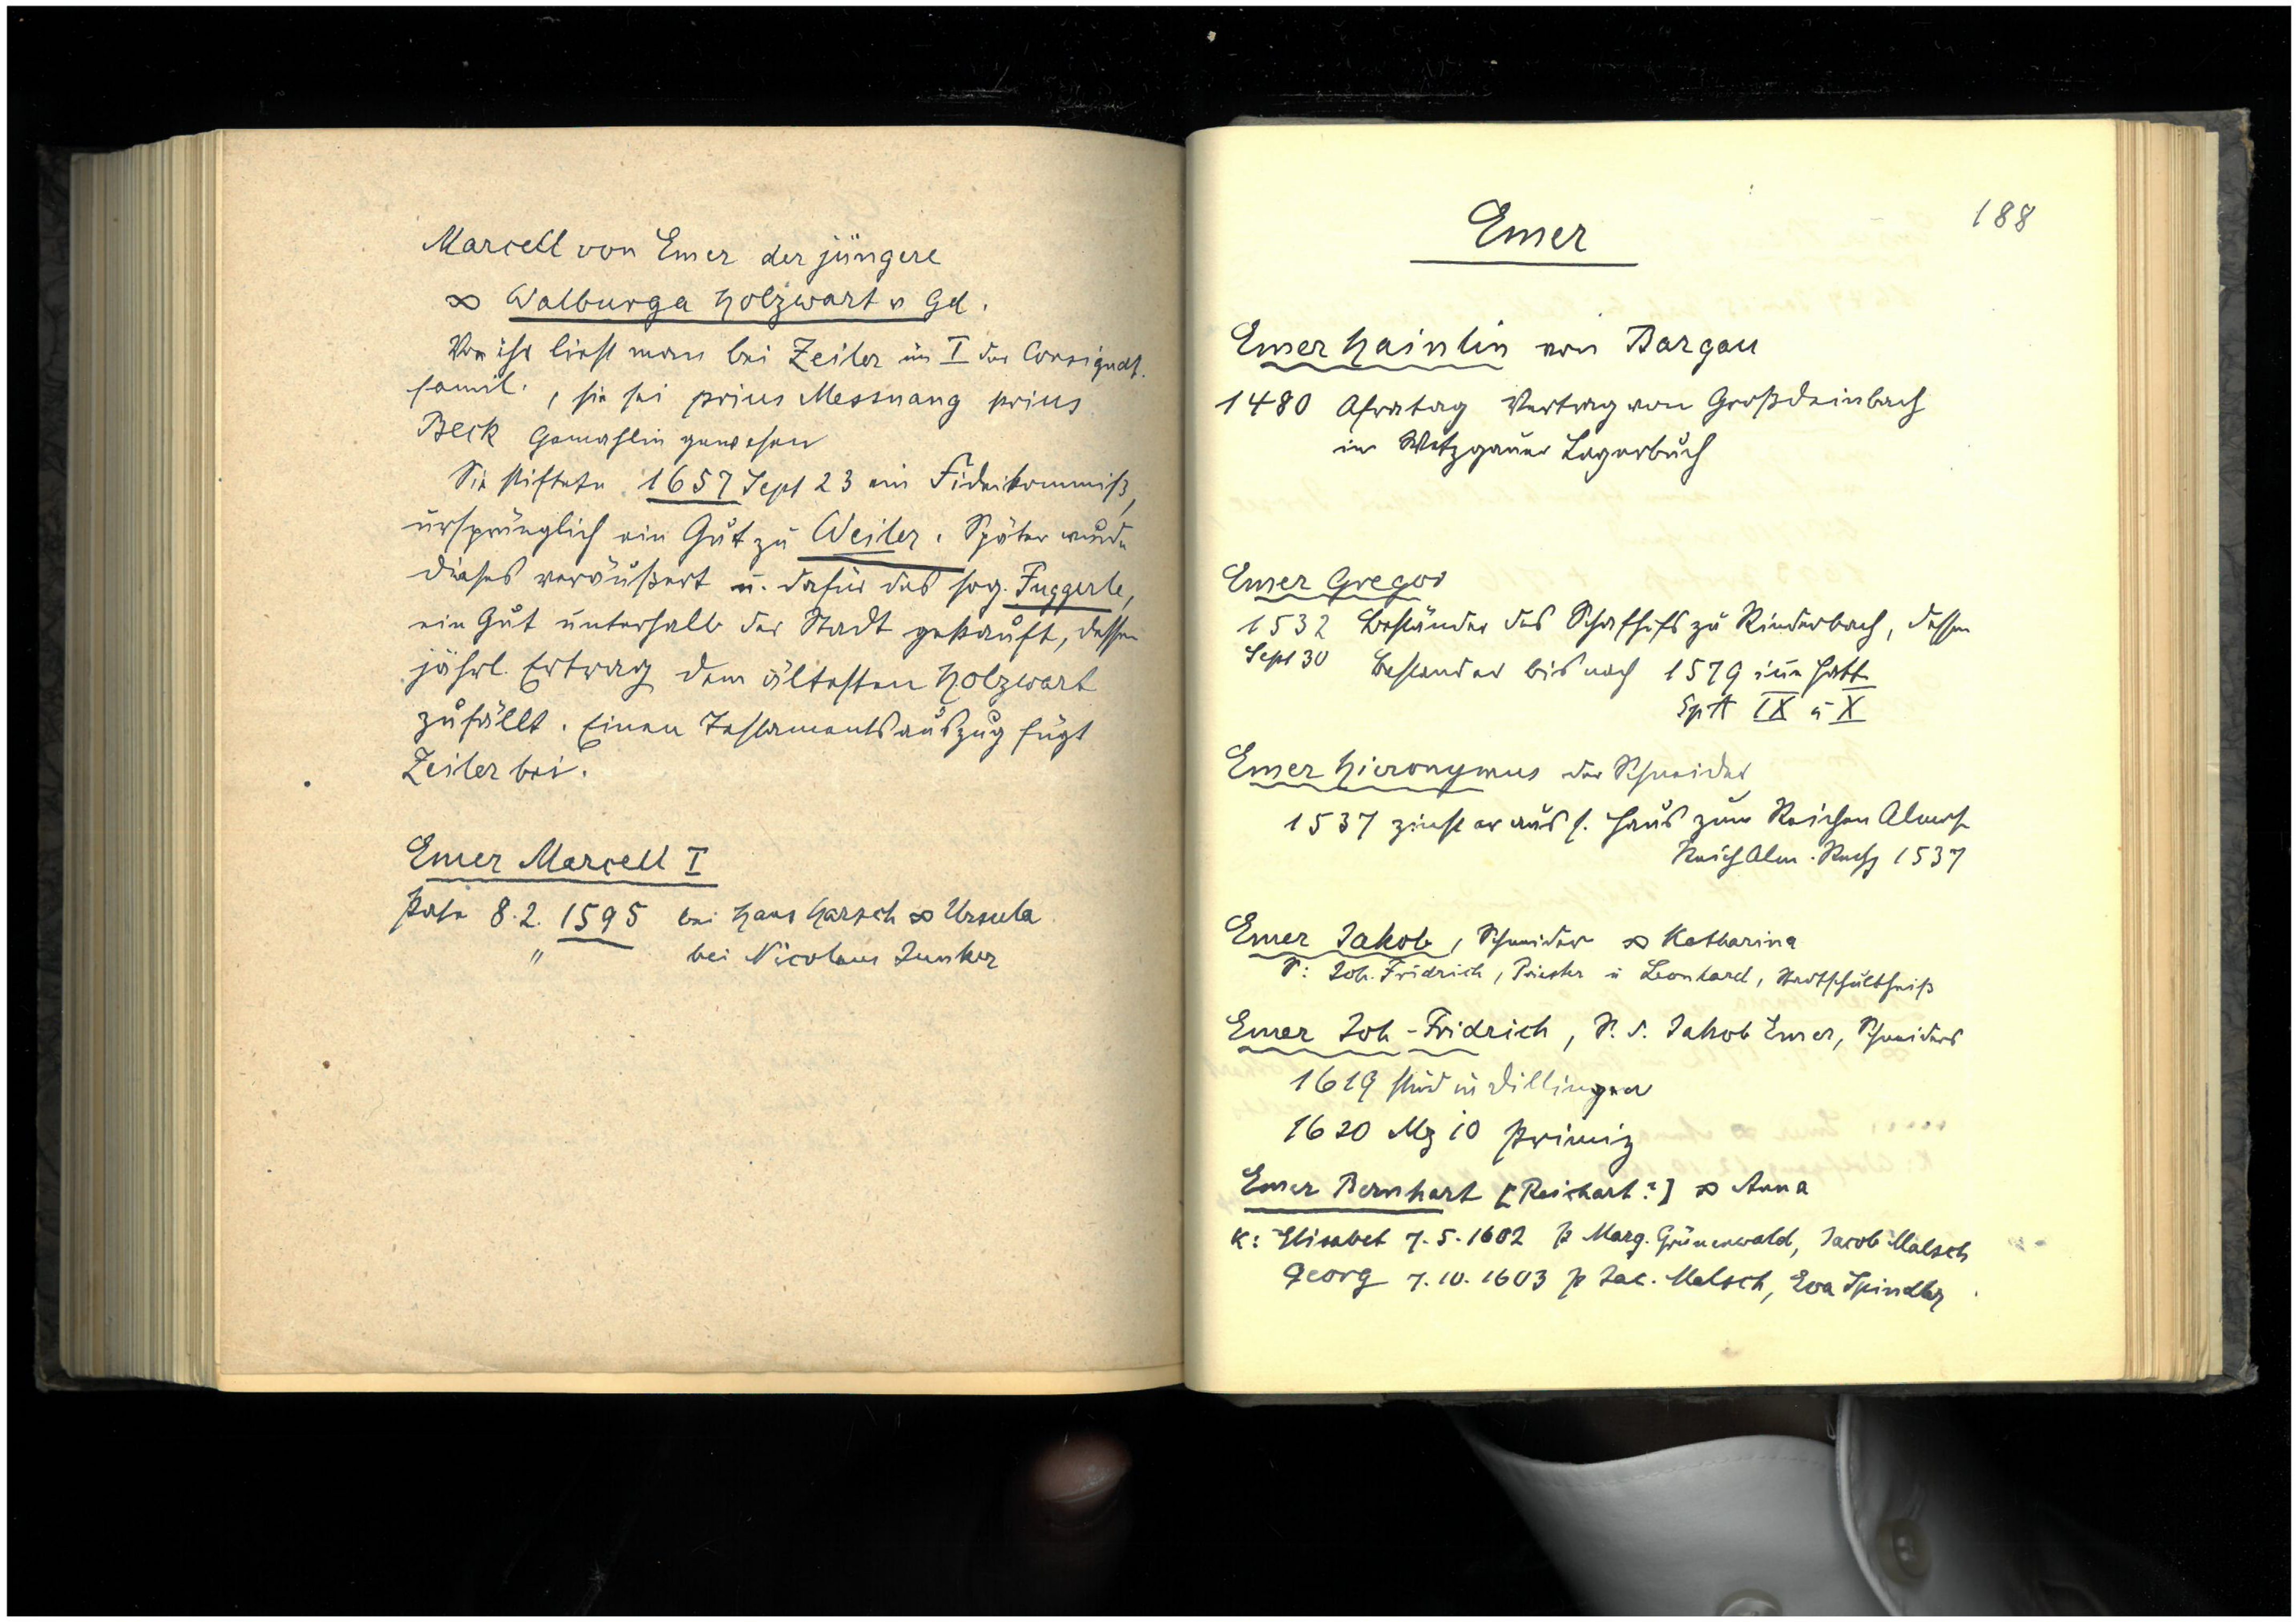 Marcell von Emer der jüngere
∞ Walburga Holzwart v Gd.
Von ihr liest man bei Zeiler im I der Consignat.
famil., sie sei prius Messnang prius
Beck Gemahlin gewesen
Sie stiftete 1657 Sept 23 ein Fideikommiß,
ursprünglich ein Gut zu Weiler. Später wurde
dieses veräußert u. dafür das sog. Fuggerle,
ein Gut unterhalb der Stadt gekauft, dessen
jährl. Ertrag dem ältesten Holzwart
zufällt. Einen Testamentsauszug fügt
Zeiler bei.
Emer Marcell I
Pate 8.2. 1595 bei Hans Harsch ∞ Ursula
" bei Nicolaus Junker
188
Emer
Emer Hainlin von Bargau
1480 Afratag Vertrag von Großdeinbach
im Wetzgauer Lagerbuch
Emer Gregor
1532 Beständer des Schafhofs zu Rinderbach, dessen
Sept 30 Bestand er bis nach 1579 inne hatte
SpA IX u X
Emer Hieronymus der Schneider
1537 zinst er aus s. Haus zum Reichen Almos
Reich Alm. Rechg 1537
Emer Jakob, Schneider ∞ Katharina
S: Joh. Fridrich, Priester u Leonhard, Stadtschultheiß
Emer Joh-Fridrich, S. d. Jakob Emer, Schneiders
1619 stud in Dillingen
1620 Mz 10 Primiz
Emer Bernhart [Reichart?] ∞ Anna
K: Elisabet 7.5.1602 p Marg. Grünenwald, Jacob Malsch
Georg 7.10.1603 p Jac. Malsch, Eva Spindler